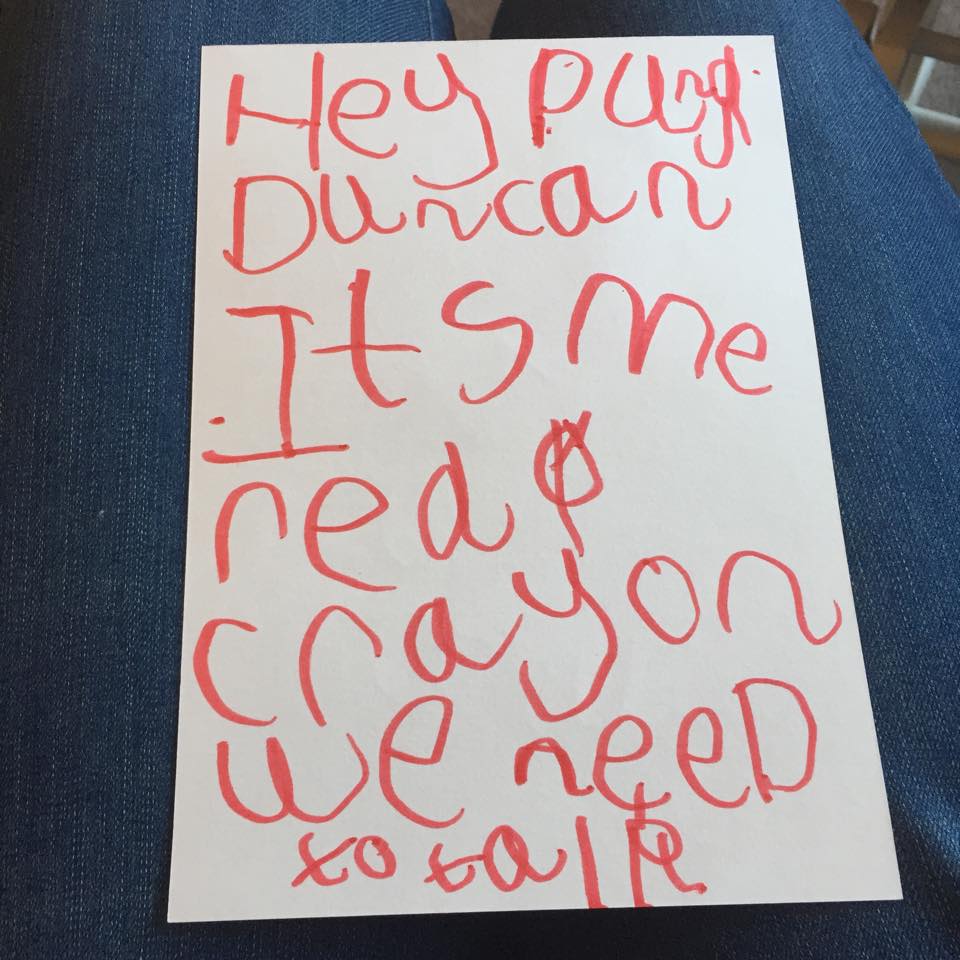 Hey
Duncan
Its me
red
crayon
we neeD
to talk